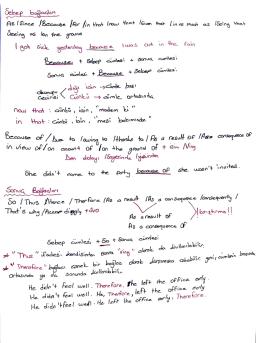 Sebep bağlaçları
As / Since / Because / For / in that / now that / given that / in as much as / Seeing that
Seeing as / on the ground
I got sick yesterday because I was out in the rain
Because + Sebep cümlesi + Sonuç cümlesi
Sonuç cümlesi + Because + Sebep cümlesi.
Çünkü = cümle ortasında
now that : çünkü, için, "madem ki"
in that : çünkü, için, "mesi bakımından"
Because of / Due to / owing to / thanks to / As a result of / As a consequence of
in view of / on account of / on the ground of + Ving
Den dolayı
She didn't came to the party because of she wasn't invited.
Sonuç Bağlaçları
So / Thus / Hence / Therefore / As a result / As a consequence / consequently /
That's why /
As a result of
As a consequence of
karıştırma!!
Sebep cümlesi + So + Sonuç cümlesi
* "Thus" ifadesi kendisinden sonra "Ving" olarak da kullanılabilir.
* "Therefore" bağlacı
ortasında ya da sonunda kullanılabilir.
He didn't feel well. Therefore, he left the office early.
He didn't feel well. He, Therefore, left the office early
He didn't feel well. He left the office early. Therefore.